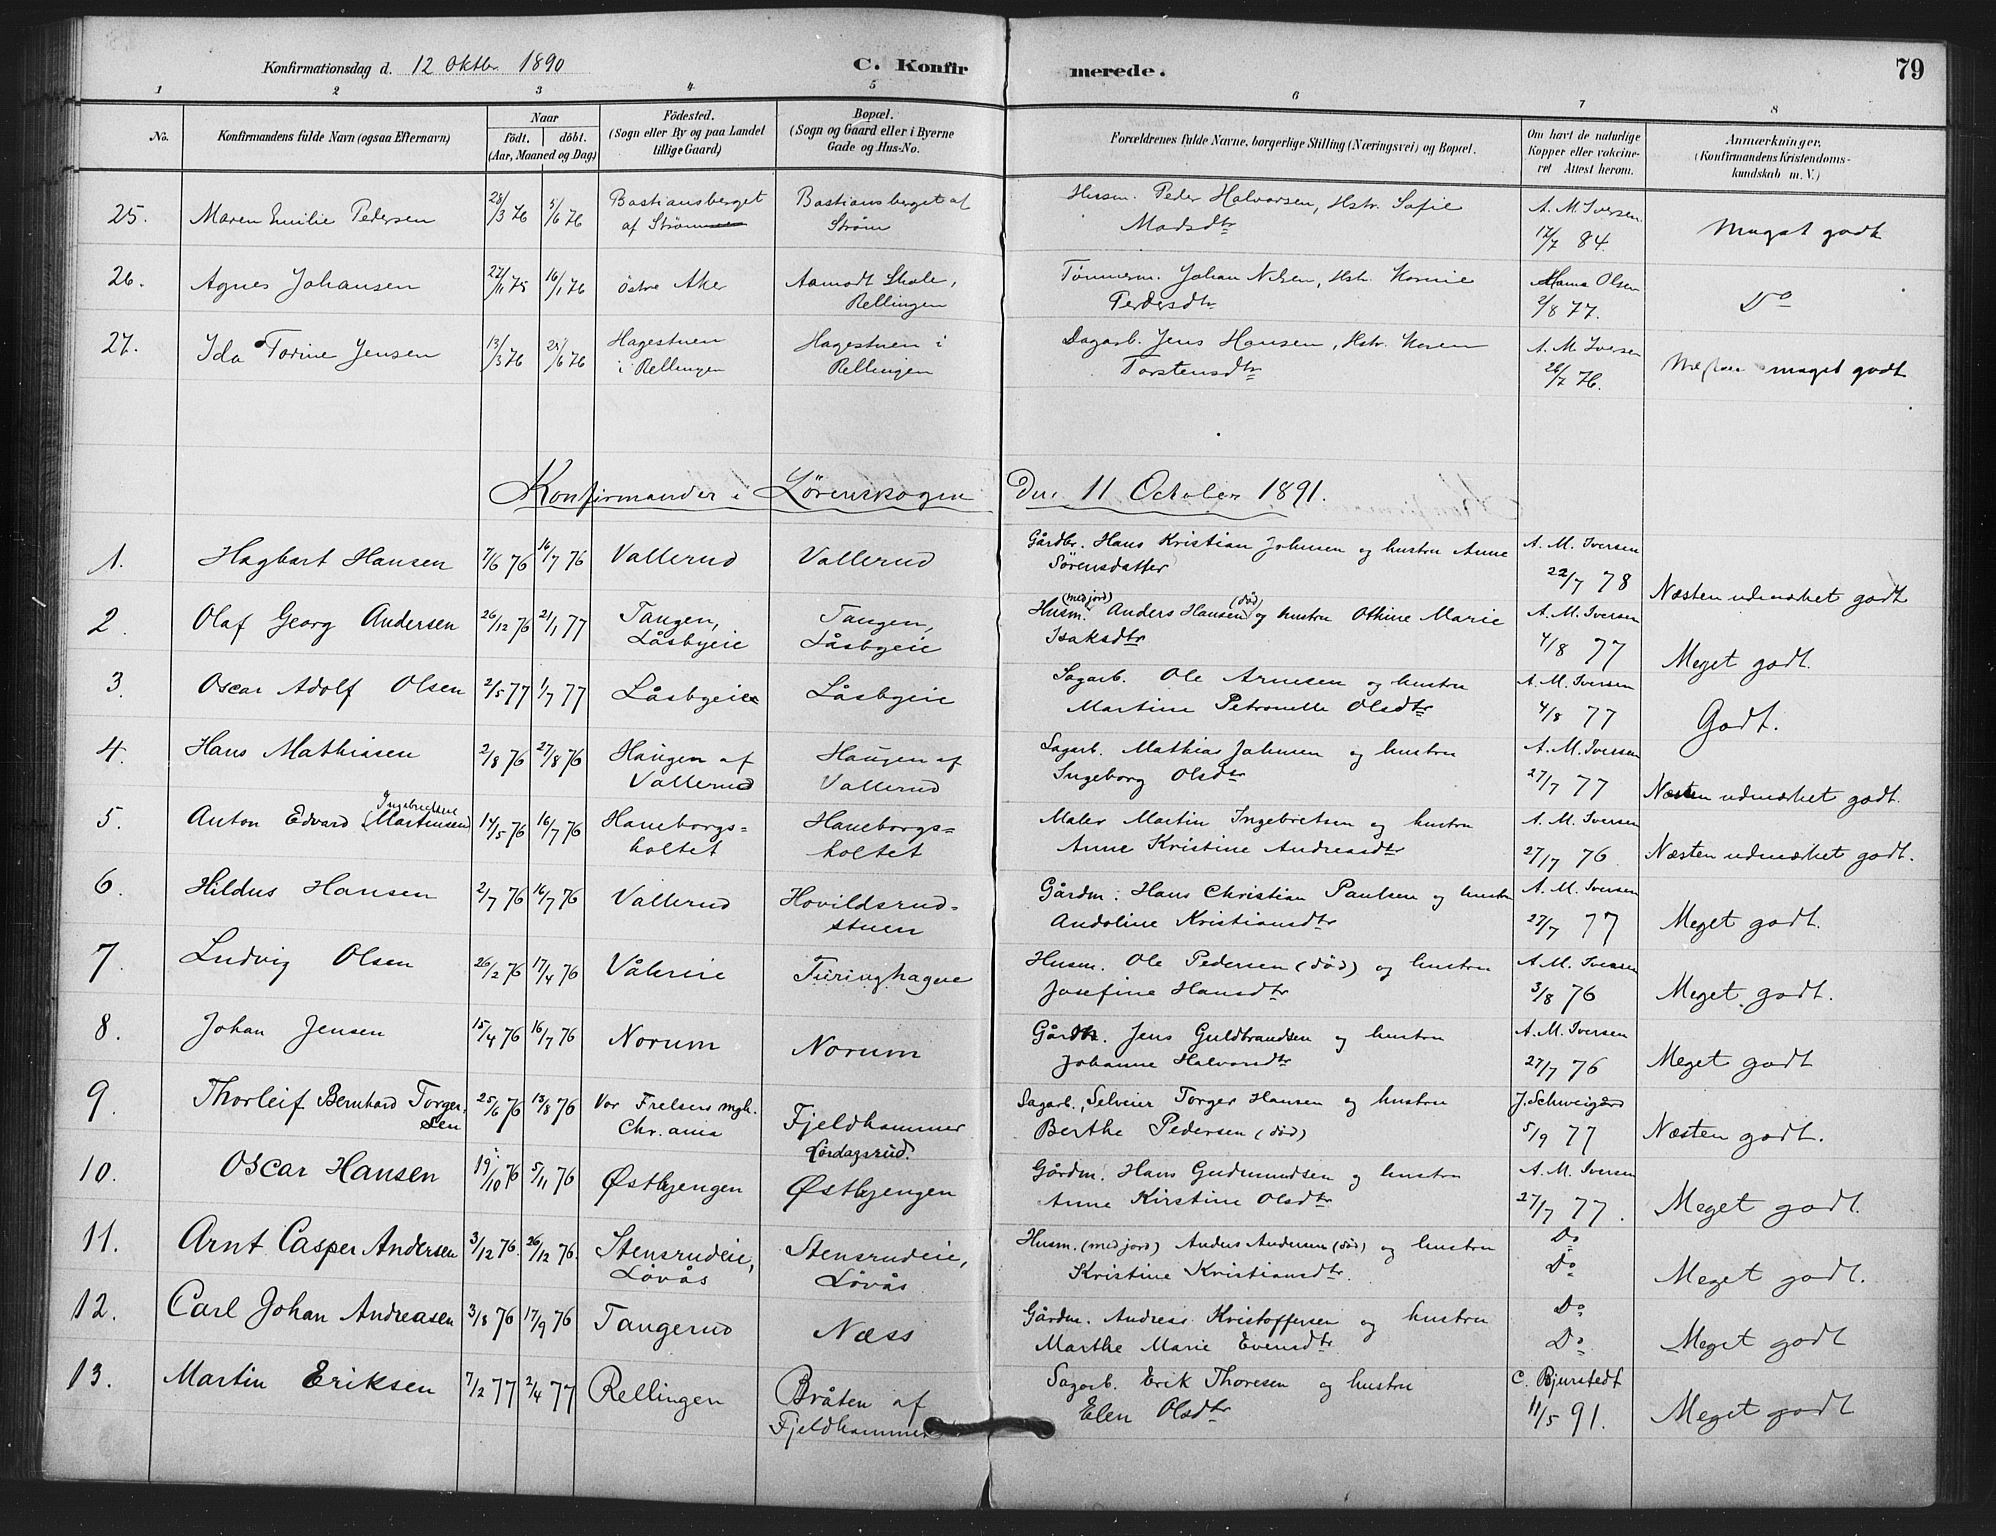 Konfirmationsdag d. 12 Oktbr. 1890 C. Konfirmerede. 79
1 2 3 4. 5 6 7 8
No. Konfirmandens fulde Navn (ogsaa Efternavn) Naar födt. döbt. (Aar, Maaned og Dag) Födested. (Sogn eller By og paa Landet tillige Gaard) Bopæl. (Sogn og Gaard eller i Byerne Gade og Hus-No. Forældrenes fulde Navne, borgerlige Stilling (Næringsvei) og Bopæl. Om havt de naturlige Kopper eller vakcineret Attest herom. Anmærkninger. (Konfirmandens Kristendomskundskab m. V.)
25. Maren Emilie Pedersen 28/3 76 5/6 76 Bastiansberget af Strøm Bastiansberget af Strøm Husm. Peder Halvorsen, Hstr. Sofie Madsdtr A. M. Iversen 17/7 84. Meget godt
26. Agnes Johansen 27/11 75 16/1 76 Östre Aker Aamodt Skole, Rellingen Tömmerm. Johan Nilsen, Hstr. Karnie Pedersdtr Hans Olsen 2/8 77. Do
27. Ida Torine Jensen 13/3 76 25/6 76 Hagestuen i Rellingen Hagestuen i Rellingen Dagarb. Jens Hansen, Hstr. Karen Torstensdtr A. M. Iversen 26/7 76. Næsten meget godt
Konfirmander i Lörenskogen Den 11 October 1891.
1. Hagbart Hansen 7/6 76 16/7 76 Vallerud Vallerud Gårdbr. Hans Kristian Johnsen og hustru Anne Sörensdatter A. M. Iversen 22/7 78 Næsten udmærket godt
2. Olaf Georg Andersen 26/12 76 21/1 77 Tangen, Låsbyeie Tangen, Låsbyeie Husm. (med jord) Anders Hansen (död) og hustru Othine Marie Isaksdtr A. M. Iversen 4/8 77 Meget godt.
3. Oscar Adolf Olsen 2/5 77 1/7 77 Låsbyeie Låsbyeie Sagarb. Ole Arnesen og hustru Martine Petronelle Olsdtr A. M. Iversen 4/8 77 Godt.
4. Hans Mathiasen 2/8 76 27/8 76 Haugen af Vallerud Haugen af Vallerud Sagarb. Mathias Johnsen og hustru Ingeborg Olsdtr A. M. Iversen 27/7 77 Næsten udmærket godt.
5. Anton Edvard Ingebretsen (Martinsen) 14/5 76 16/7 76 Haneborgs=holtet Haneborgs=holtet Maler Martin Ingebretsen og hustru Anne Kristine Andreasdtr A. M. Iversen 27/7 76 Næsten udmærket godt.
6. Hildus Hansen 2/7 76 16/7 76 Vallerud Hovildsrud=stuen Gårdm. Hans Christian Paulsen og hustru Andoline Kristiansdtr A. M. Iversen 27/7 77 Meget godt.
7. Ludvig Olsen 26/2 76 17/4 76 Vålereie Turinghagne Husm. Ole Pedersen (död) og hustru Josefine Hansdtr A. M. Iversen 3/8 76 Meget godt.
8. Johan Jensen 15/4 76 16/7 76 Norum Norum Gårdbr. Jens Guldbrandsen og hustru Johanne Halvorsdtr A. M. Iversen 27/7 76 Meget godt
9. Thorleif Bernhard Torgersen 25/6 76 13/8 76 Vor Frelsers mgh. Chr.ania Fjeldhammer Lördagsrud. Sagarb., Selveier Torger Hansen og hustru Berthe Pedersen (död) J. Schweigård 5/9 77 Næsten godt.
10. Oscar Hansen 19/10 76 5/11 76 Østbyengen Østbyengen Gårdm. Hans Gudmundsen og hustru Anne Kirstine Olsdtr A. M. Iversen 27/7 77. Meget godt.
11. Arnt Casper Andersen 3/12 76. 26/12 76. Stensrudeie, Lövås Stensrudeie, Lövås Husm. (med jord) Anders Andersen (död) og hustru Kristine Kristiansdtr. Do Do Meget godt.
12. Carl Johan Andreasen 3/8 76 17/9 76 Tangerud Næss Gårdm. Andreas Kristoffersen og hustru Marthe Marie Evensdtr Do Do Meget godt
13. Martin Eriksen 7/2 77 2/4 77 Rellingen Bråten af Fjeldhammer Sagarb. Erik Thoresen og hustru Elen Olsdtr C. Bjurstedt 11/5 91. Meget godt